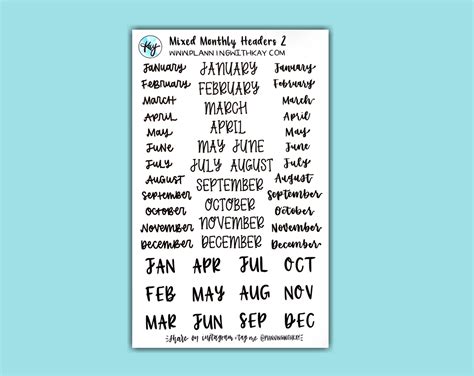 Kay
Mixed Monthly Headers 2
WWW.PLANNINGWITHKAY.COM
January JANUARY January
February FEBRUARY February
March MARCH March
April APRIL April
May MAY JUNE May
June JULY AUGUST June
July SEPTEMBER July
August OCTOBER August
September NOVEMBER September
October DECEMBER October
November November
December December
JAN APR JUL OCT
FEB MAY AUG NOV
MAR JUN SEP DEC
share on instagram + tag me @PLANNINGWITHKAY